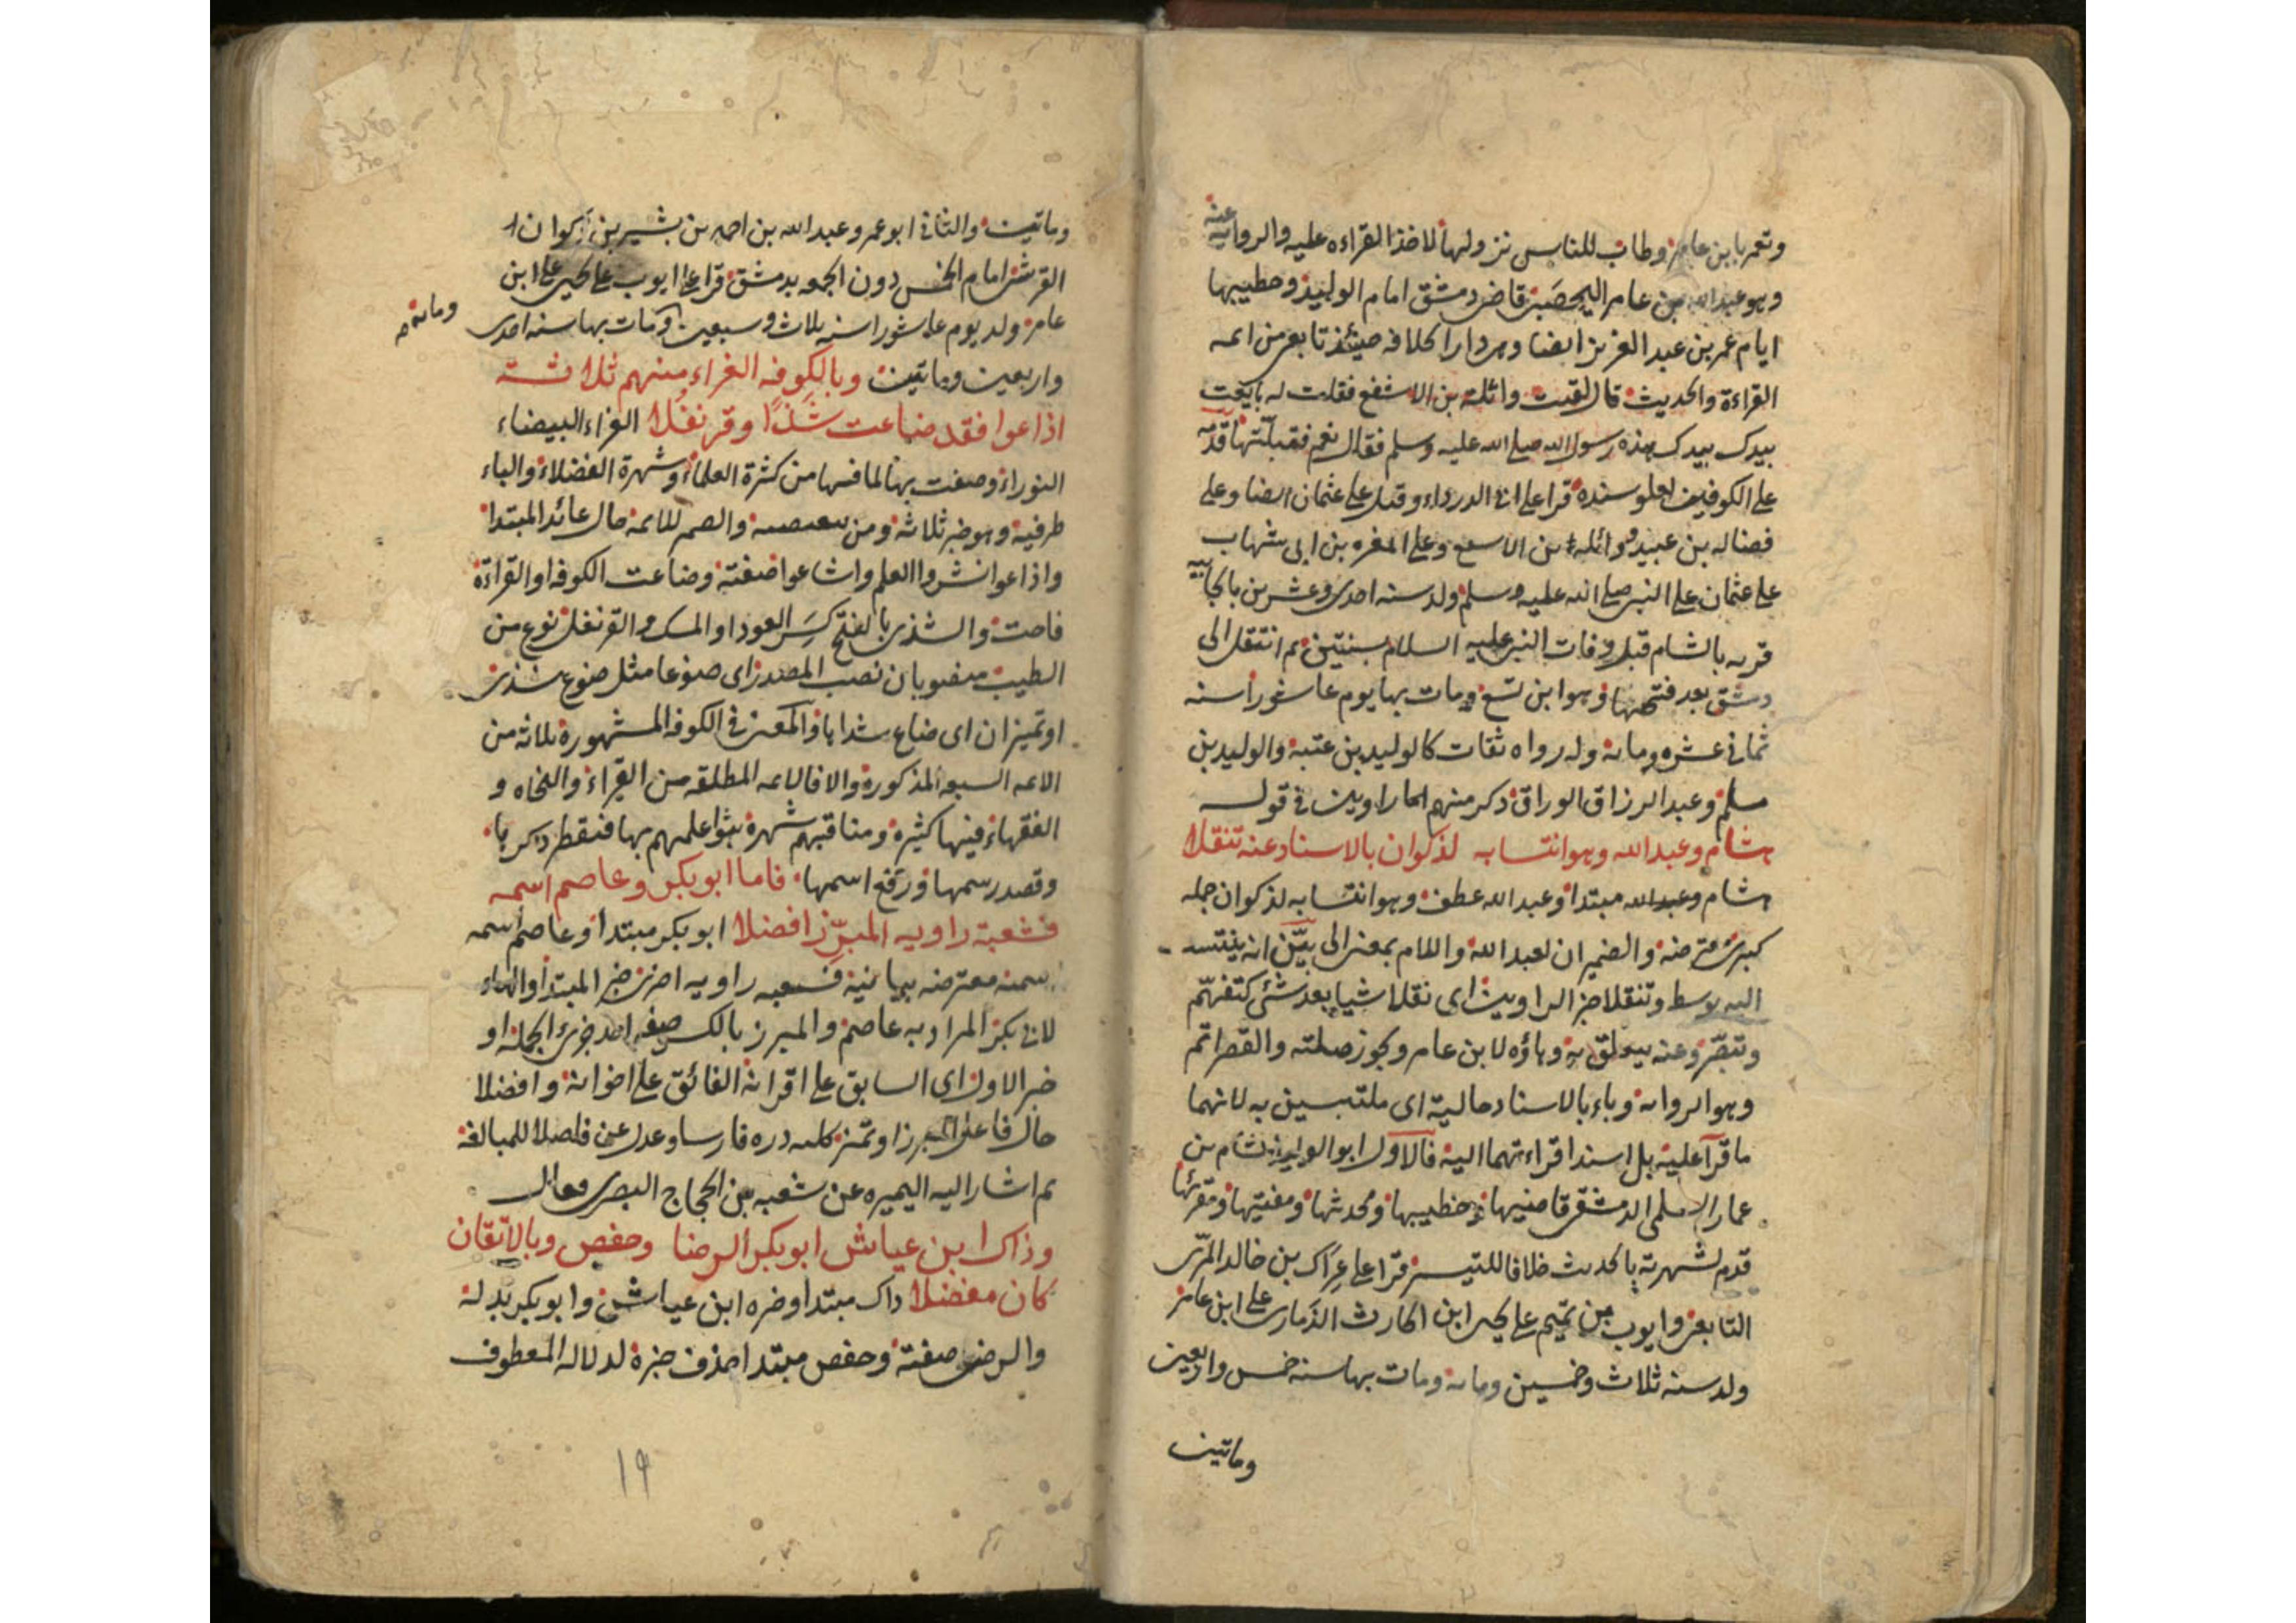 وتعمر بابن عامر وطاب للناس نزولها لاخذ القراءه عليه والروايه عنه
وهو عبد الله بن عامر اليحصبي قاضي دمشق امام الوليد وخطيبها
ايام عمر بن عبد العزيز ايضا وهي دار الخلافه حينئذ تابعي من ايمه
القراءة والحديث قال لقيت واثلة بن الاسقع فقلت له بايعت
بيدك بيدك هذه رسول الله صلى الله عليه وسلم فقال نعم فقبلتها قدمه
على الكوفيين لعلو سنده قرا على ابي الدرداء وقيل على عثمان ايضا وعلى
فضاله بن عبيد وواثله بن الاسقع وعلى المغيره بن ابي شهاب
على عثمان على النبي صلى الله عليه وسلم ولد سنه احدى وعشرين بالجابيه
قريه بالشام قبل وفات النبي عليه السلام بسنتين ثم انتقل الى
دمشق بعد فتحها وهو ابن تسع ومات بها يوم عاشورا سنه
ثماني عشره ومايه وله رواه ثقات كالوليد بن عتبة والوليد بن
مسلم وعبد الرزاق الوراق ذكر منهم راويين في قوله
هشام وعبد الله وهو انتسابه لذكوان بالاسناد عنه تنقلا
هشام وعبد الله مبتدا وعبد الله عطف وهو انتسابه لذكوان جمله
كبرى معترضه والضميران لعبد الله واللام بمعنى الى بين انه ينتسب
اليه بوسط وتنقلا خبر الراويين اى نقلا شيا بعد شئ كتفهم
وتبصر وعنه يتعلق به وهاؤه لابن عامر ويجوز صلته والقصر اتم
وهو الروايه وباء بالاسناد حالية اى ملتبسين به لانهما
ما قرآ عليه بل اسندا قراءتهما اليه فالاول ابو الوليد هشام بن
عمار السلمي الدمشقي قاضيها وخطيبها ومحدثها ومفتيها ومقرئها
قدم لشهرته بالحديث خلافا للتيسير قرا على عراك بن خالد المري
التابعي وايوب بن تميم على يحيى ابن الحارث الذماري على ابن عامر
ولد سنه ثلاث وخمسين ومايه ومات بها سنه خمس واربعين
وماتين
وماتين والثاني ابو عمرو عبد الله بن احمد بن بشير بن ذكوان
القرشي امام الخمس دون الجمعه بدمشق قرا على ايوب على يحيى على ابن
عامر ولد يوم عاشورا سنه ثلاث وسبعين ومات بها سنه احدى
ومايه صح
واربعين وماتين وبالكوفه الغراء منهم ثلاثة
اذاعوا فقد ضاعت شذًا وقرنفلا الغراء البيضاء
النوراء وصفت بها لما فيها من كثرة العلماء وشهرة الفضلاء والباء
ظرفية وهو خبر ثلاثة ومن تبعيضيه والضمير للايمه حال عائد المبتدا
واذاعوا نشروا العلم واشاعوا صفته وضاعت الكوفه او القراءة
فاحت والشذى بالفتح كسر العود او المسك والقرنفل نوع من
الطيب منصوبان نصب المصدر اى ضوعا مثل ضوع شذى
او تميزان اى ضاع شذاها والمعنى في الكوفه المشهورة ثلاثه من
الايمه السبعه المذكورة والا فالايمه المطلقه من القراء والنحاه و
الفقهاء فيها كثيرة ومناقبهم شهيرة بثوا علمهم بها فنقط ذكرها
وقصد رسمها ورفع اسمها فاما ابو بكر وعاصم اسمه
فشعبة راويه المبرّز افضلا ابو بكر مبتدا وعاصم اسمه
اسميه معترضه بيانية فشعبه راويه اخرى خبر المبتدا والهاء
لابي بكر المراد به عاصم والمبرز بالكسر صفه احد جزئي الجملة او
خبر الاول اى السابق على اقرانه الفائق على اخوانه وافضلا
حال فاعل المبرز او تميز كلله دره فارسا وعدل عن فاضلا للمبالغة
ثم اشار اليه ليميزه عن شعبه بن الحجاج البصري فقال
وذاك ابن عياش ابو بكر الرضا وحفص وبالاتقان
كان مفضلا ذاك مبتدا وخبره ابن عياش وابو بكر بدله
والرضى صفته وحفص مبتدا حذف خبره لدلاله المعطوف
١٩